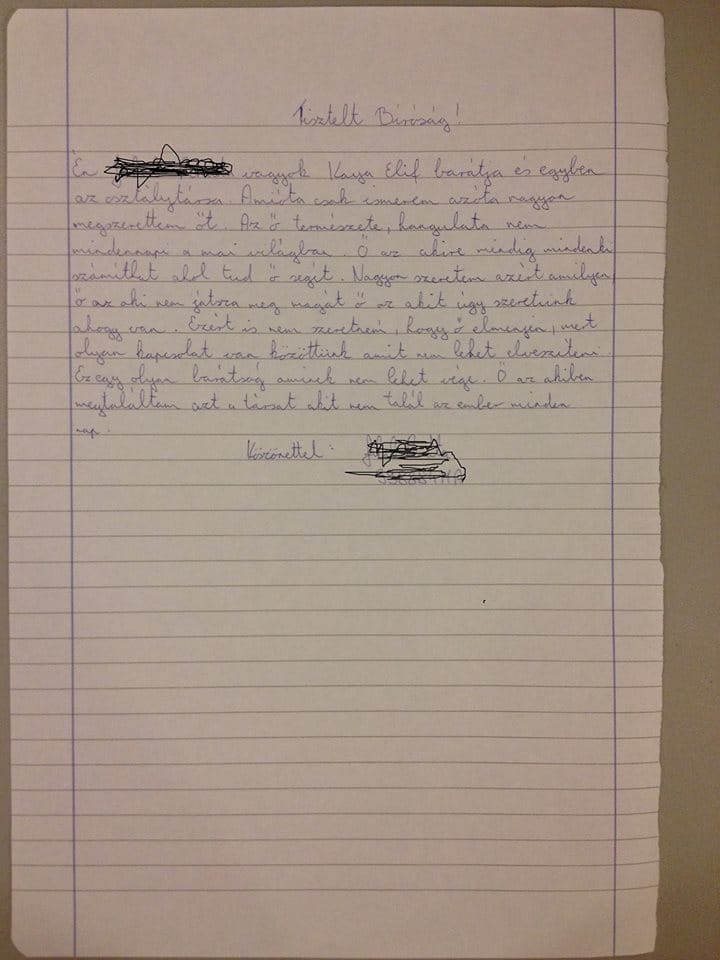 Tisztelt Bíróság!
Én vagyok Kaya Elif barátja és egyben
az osztálytársa. Amióta csak ismerem azóta nagyon
megszerettem őt. Az ő természete, hangulata nem
mindennapi a mai világban. Ő az akire mindig mindenki
számíthat ahol tud ő segít. Nagyon szeretem azért amilyen,
ő az aki nem játsza meg magát ő az akit úgy szeretünk
ahogy van. Ezért is nem szeretném, hogy ő elmenjen, mert
olyan kapcsolat van közöttünk amit nem lehet elveszíteni.
Ez egy olyan barátság aminek nem lehet vége. Ő az akiben
megtaláltam azt a társat akit nem talál az ember minden
nap.
Köszönettel: